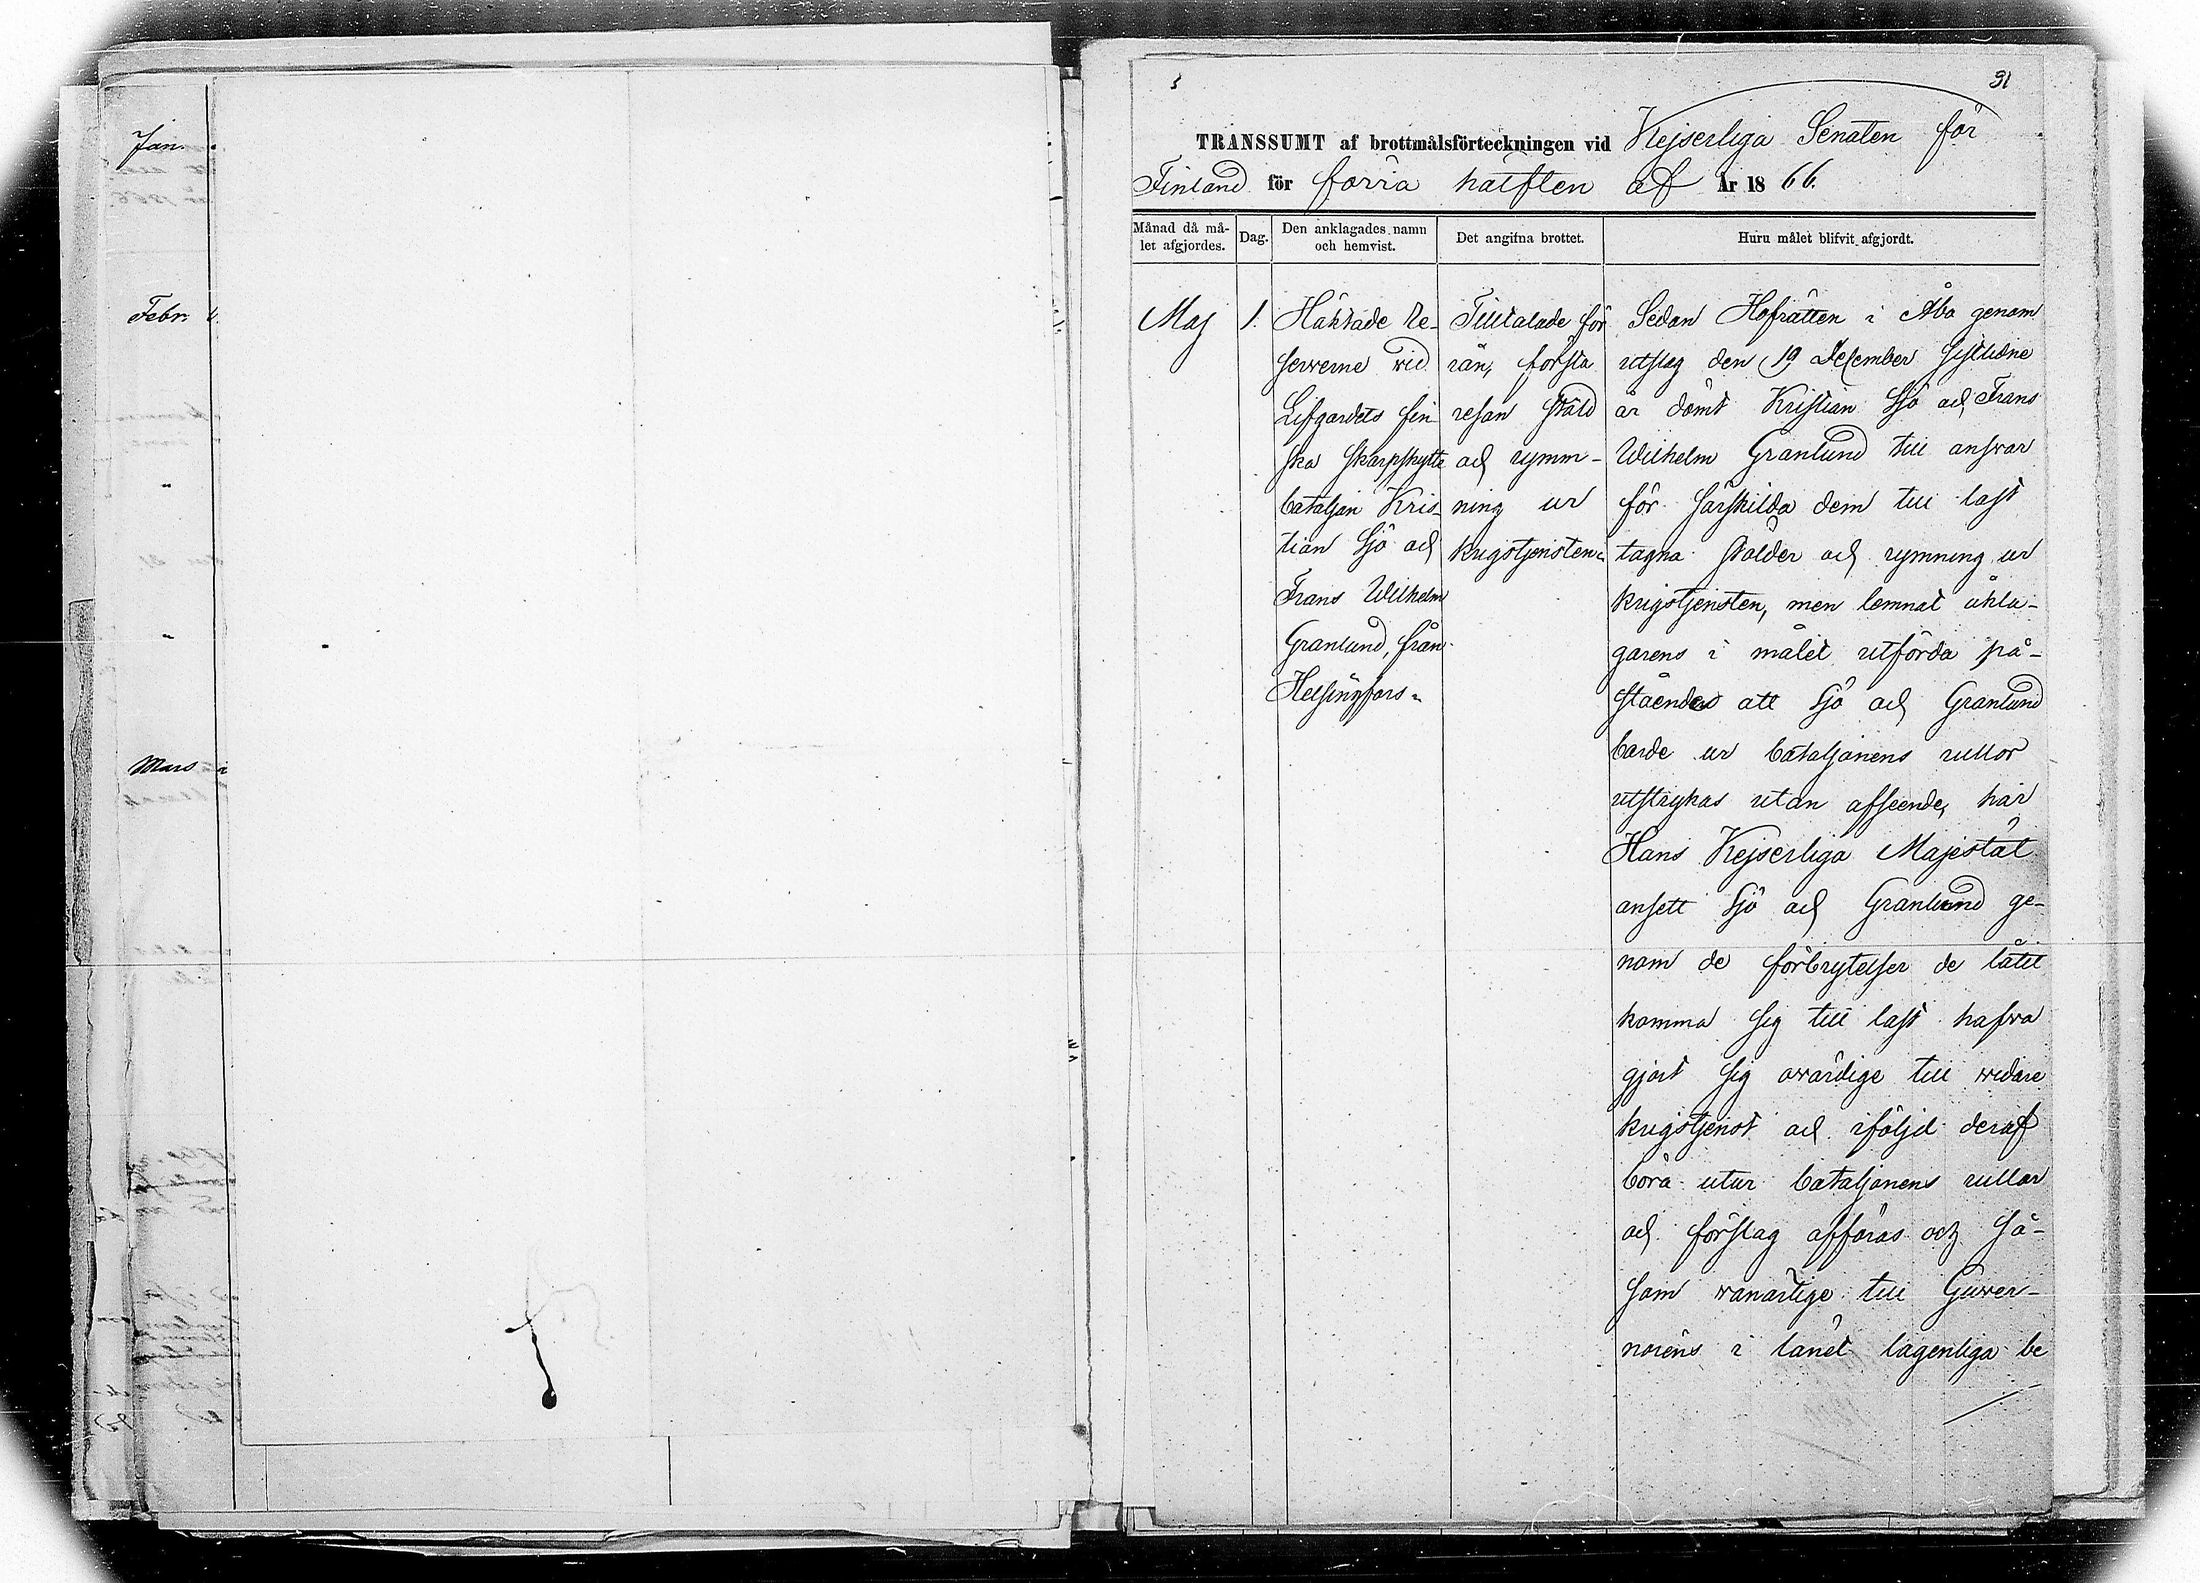 Jan.
Febr.
Mars
31
TRANSSUMT af brottmålsförteckningen vid Kejserliga Senaten för
Finland för förra hälften af År 1866.
Månad då må-
let afgjordes.
Dag.
Den anklagades namn
och hemvist.
Det angifna brottet.
Huru målet blifvit afgjordt.
Maj
1.
Häktade re-
serverne vid
Lifgardets fin
ska skarpskytte
bataljon Kris-
tian Sjö och
Frans Wilhelm
Granlund, från
Helsingfors.
Tilltalade för
rån, första
resan stöld
och rymm-
ning ur
krigstjensten.
Sedan Hofrätten i Åbo genom
utslag den 19 December sistlidne
år dömt Kristian Sjö och Frans
Wilhelm Granlund till answar
för särskilda dem till last
tagna stölder och rymning ur
krigstjensten, men lemnat åkla-
garens i målet utförda på-
ståendes att Sjö och Granlund
borde ur bataljonens rullor
utstrykas utan afseende, har
Hans Kejserliga Majestät
ansett Sjö och Granlund ge-
nom de förbrytelser de låtit
komma sig till last hafva
gjort sig ovärdige till vidare
krigstjenst och iföljd deraf
böra utur bataljonens rullor
och förslag afföras och så-
som vanartige till Guver-
nörens i länet lagenliga be